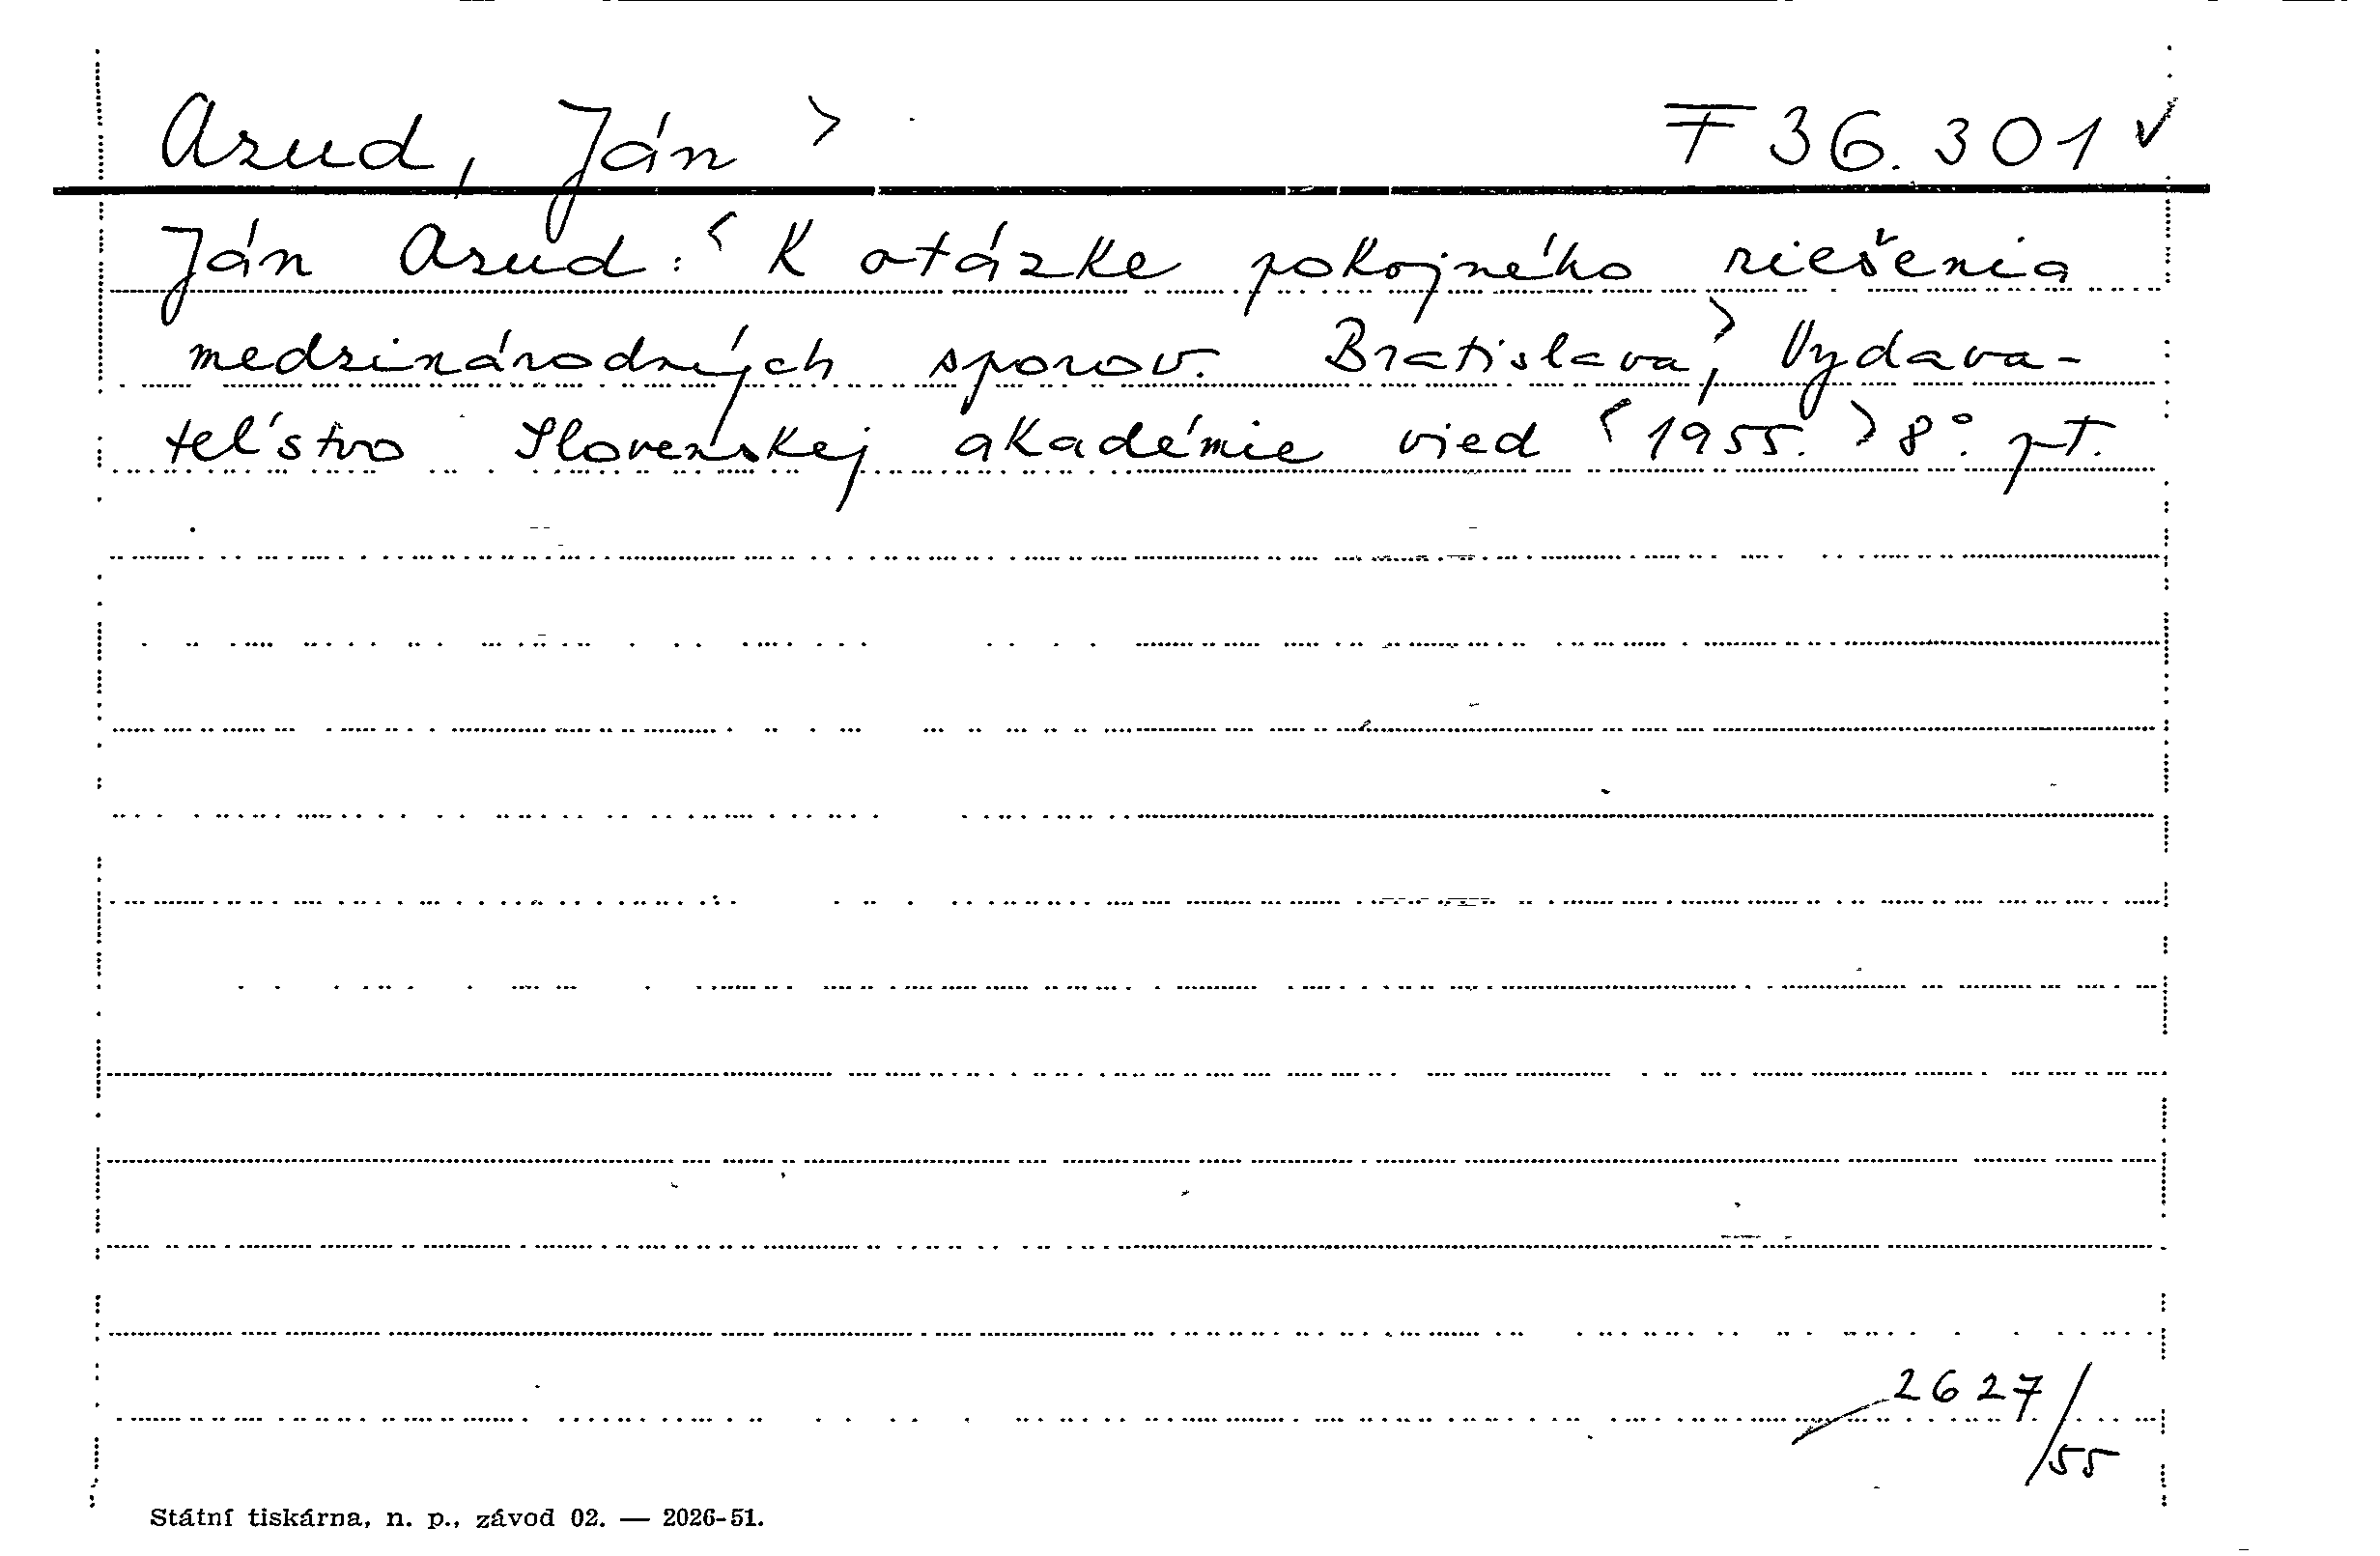 Azud, Ján > F 36.301 ✓
Ján Azud: < K otázke pokojného riešenia
medzinárodných sporov. Bratislava,> Vydava-
teľstvo Slovenskej akadémie vied <1955.> 8°. pt.
2627/55
Státní tiskárna, n. p., závod 02. — 2026-51.